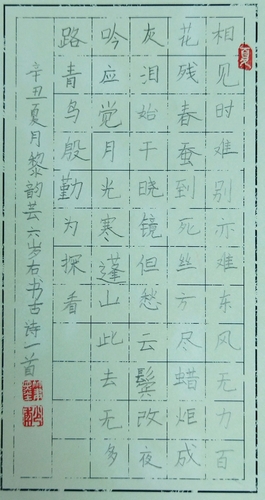 夏
相见时难别亦难东风无力百
花残春蚕到死丝方尽蜡炬成
灰泪始干晓镜但愁云鬓改夜
吟应觉月光寒蓬山此去无多
路青鸟殷勤为探看
辛丑夏月黎韵芸六岁右书古诗一首